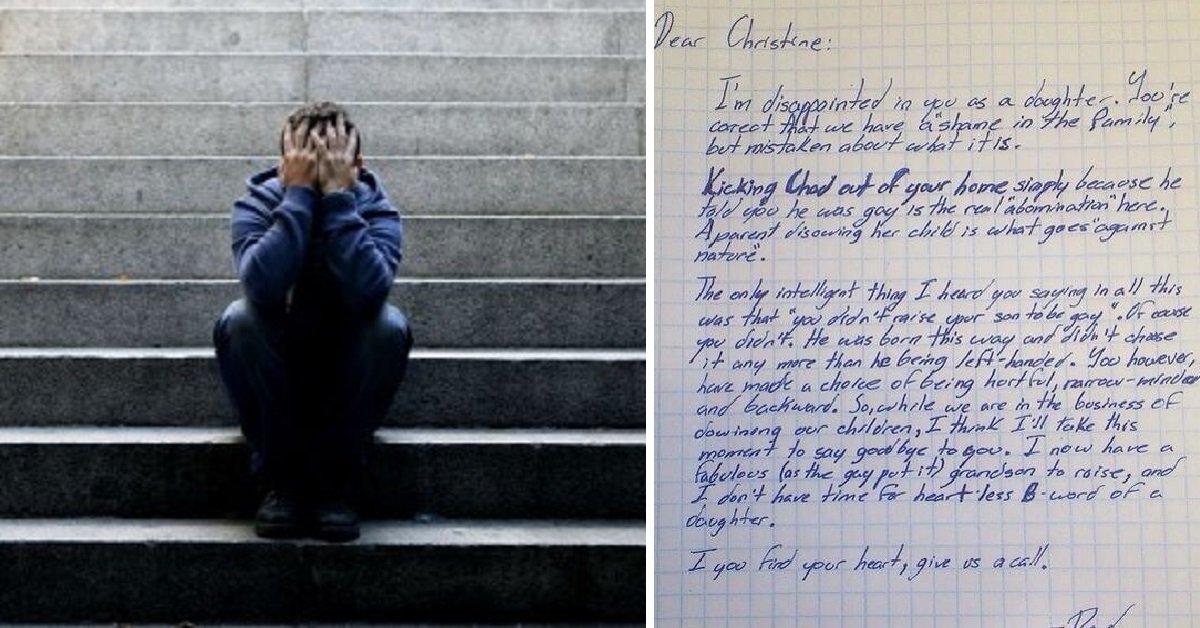 Dear Christine:
I'm disappointed in you as a daughter. You're
corect that we have a "shame in the family",
but mistaken about what it is.
Kicking Chad out of your home simply because he
told you he was gay is the real "abomination" here.
A parent disowing her child is what goes "against
nature".
The only intelligent thing I heard you saying in all this
was that "you didn't raise your son to be gay". Of couse
you didn't. He was born this way and didn't choose
it any more than he being left-handed. You however,
have made a choice of being hurtful, narrow-minded
and backward. So, while we are in the business of
downing our children, I think I'll take this
moment to say goodbye to you. I now have a
fabulous (as the gay put it) grandson to raise, and
I don't have time for heart-less B-word of a
daughter.
I you find your heart, give us a call.
-Dad